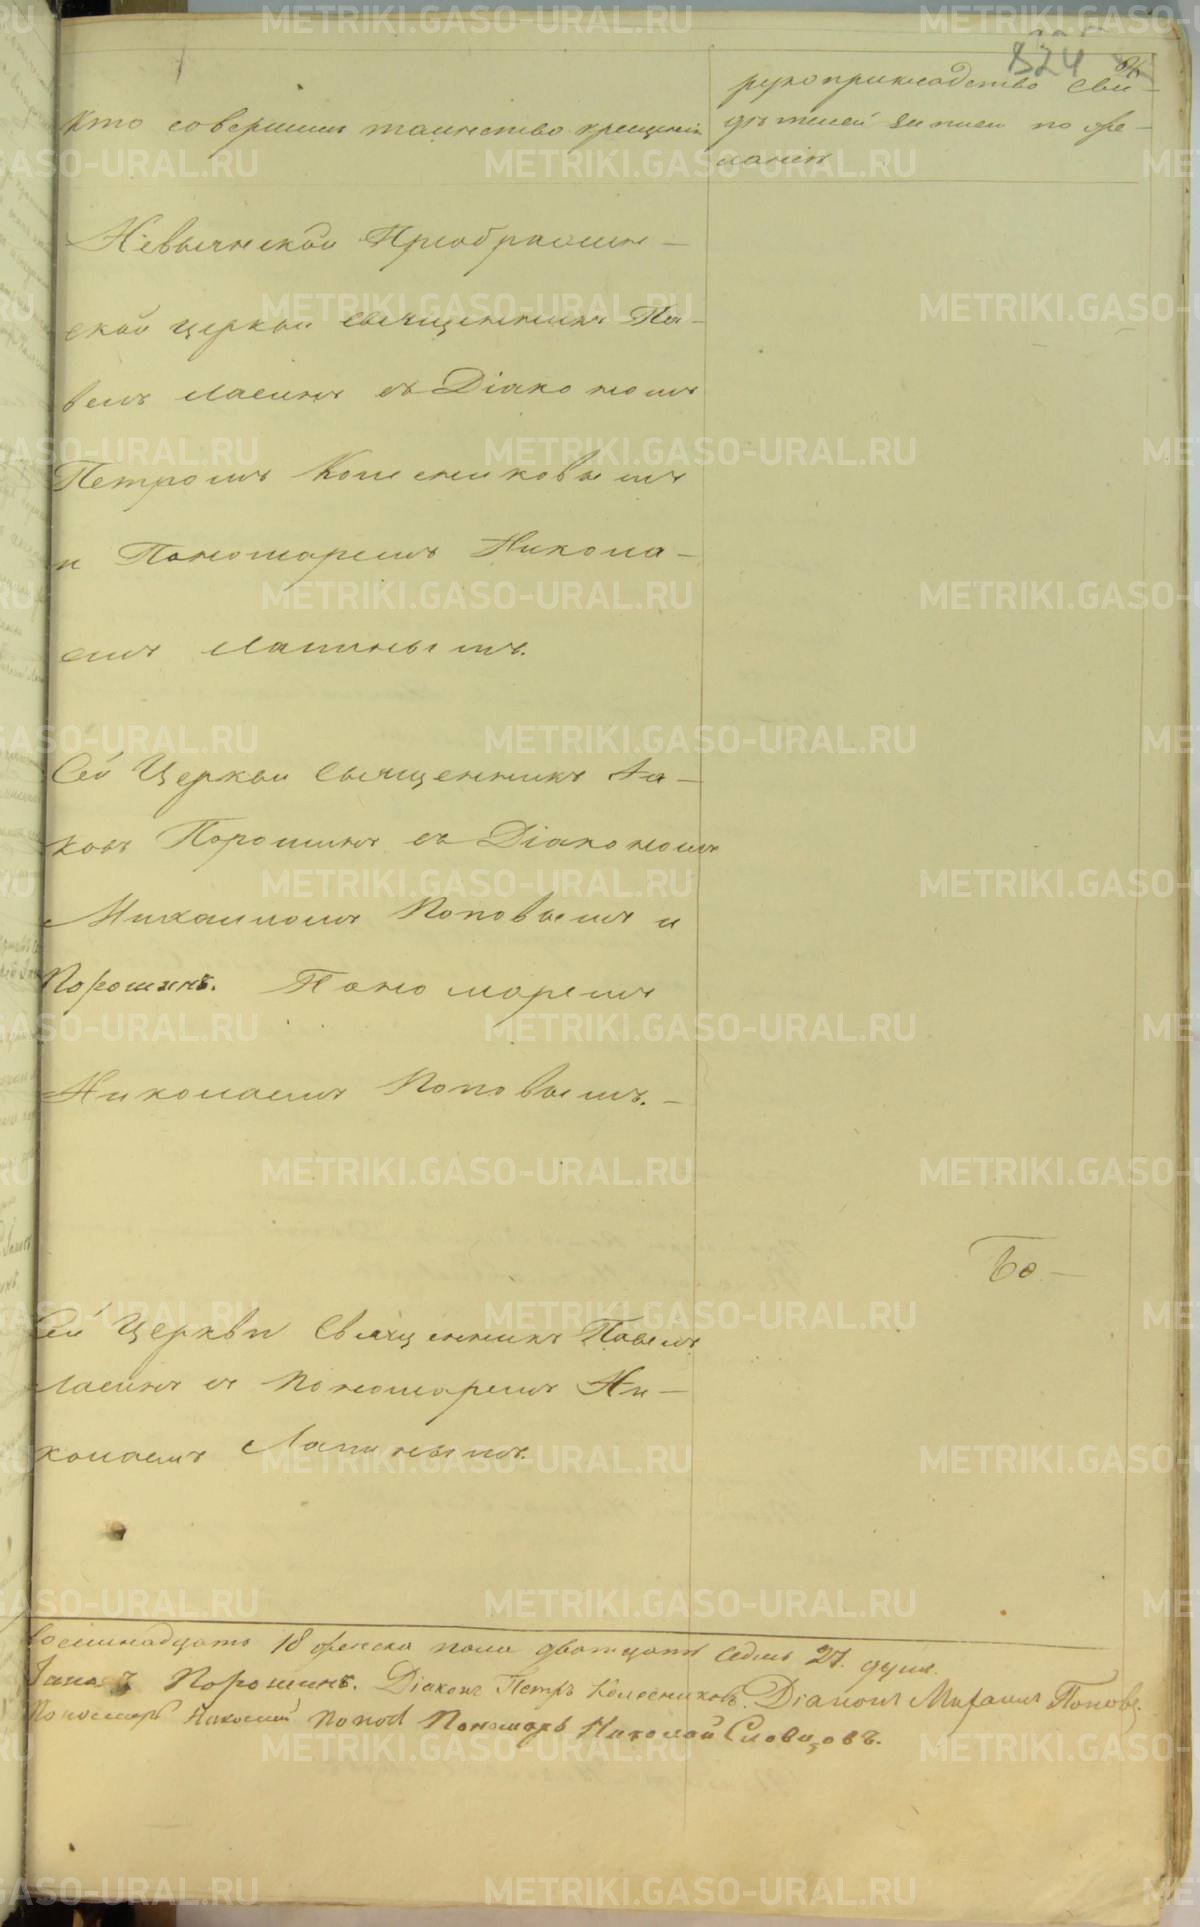 324
Кто совершилъ таинство крещенія
рукоприкладство сви-
дѣтелей записи по же-
ланію
Невьянской Преображен-
ской церкви священникъ Па-
велъ Ласинъ съ Діакономъ
Петромъ Колесниковымъ
и Пономаремъ Никола-
емъ Лапинымъ.
Сей Церкви Священникъ Іа-
ковъ Порошинъ съ Діакономъ
Михаиломъ Поповымъ и
Порошинъ. Пономаремъ
Николаемъ Поповымъ. —
Бо —
Сей Церкви Священникъ Павелъ
Ласинъ съ Пономаремъ Ни-
колаемъ Лапинымъ.
восемнадцать 18 женска пола дватцать седмь 27. душъ.
Іаковъ Порошинъ. Діаконъ Петръ Колесниковъ. Діаконъ Михаилъ Поповъ.
Пономарь Николай Попов Пономарь Николай Словцовъ.
METRIKI.GASO-URAL.RU